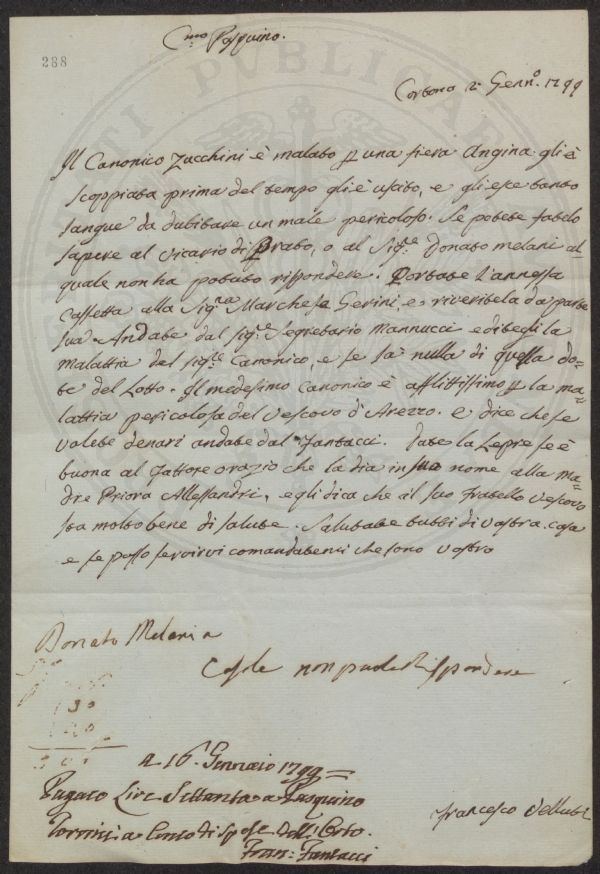 288
C.mo Pasquino.
Cortona 2 Genn.o 1799
Il Canonico Zucchini è malato p una fiera Angina gli è
scoppiata prima del tempo gli è uscito, e gli esce tanto
sangue da dubitare un male pericoloso. Se potete fatelo
sapere al Vicario di Prato, o al Sig.re Donato Melani al=
quale non ha potuto rispondere. Portate l'annessa
Cassetta alla Sig.ra Marchesa Gerini, e riveritela da parte
sua. Andate dal sig.re Segretario Mannucci e ditegli la
malattia del sig.re Canonico, e se sà nulla di quella do=
te del Lotto. Il medesimo Canonico è afflittissimo p la ma=
lattia pericolosa del Vescovo d'Arezzo. e dice che se
volete denari andate dal Fantacci. Date la Lepre se è
buona al Fattore Orazio che la dia in suo nome alla Ma=
dre Priora Allessandri, e gli dica che il suo Fratello Vescovo
sta molto bene di salute. Salutate tutti di vostra casa
e se posso servirvi comandatemi che sono vostro
Donato Melani
che non puole Rispondere
30
A 16. Gennaio 1799=
Pagato Lire Settanta a Pasquino
Tornisi a Conto di Spese dell'Orto.
Fran: Fantacci
Francesco Velluti